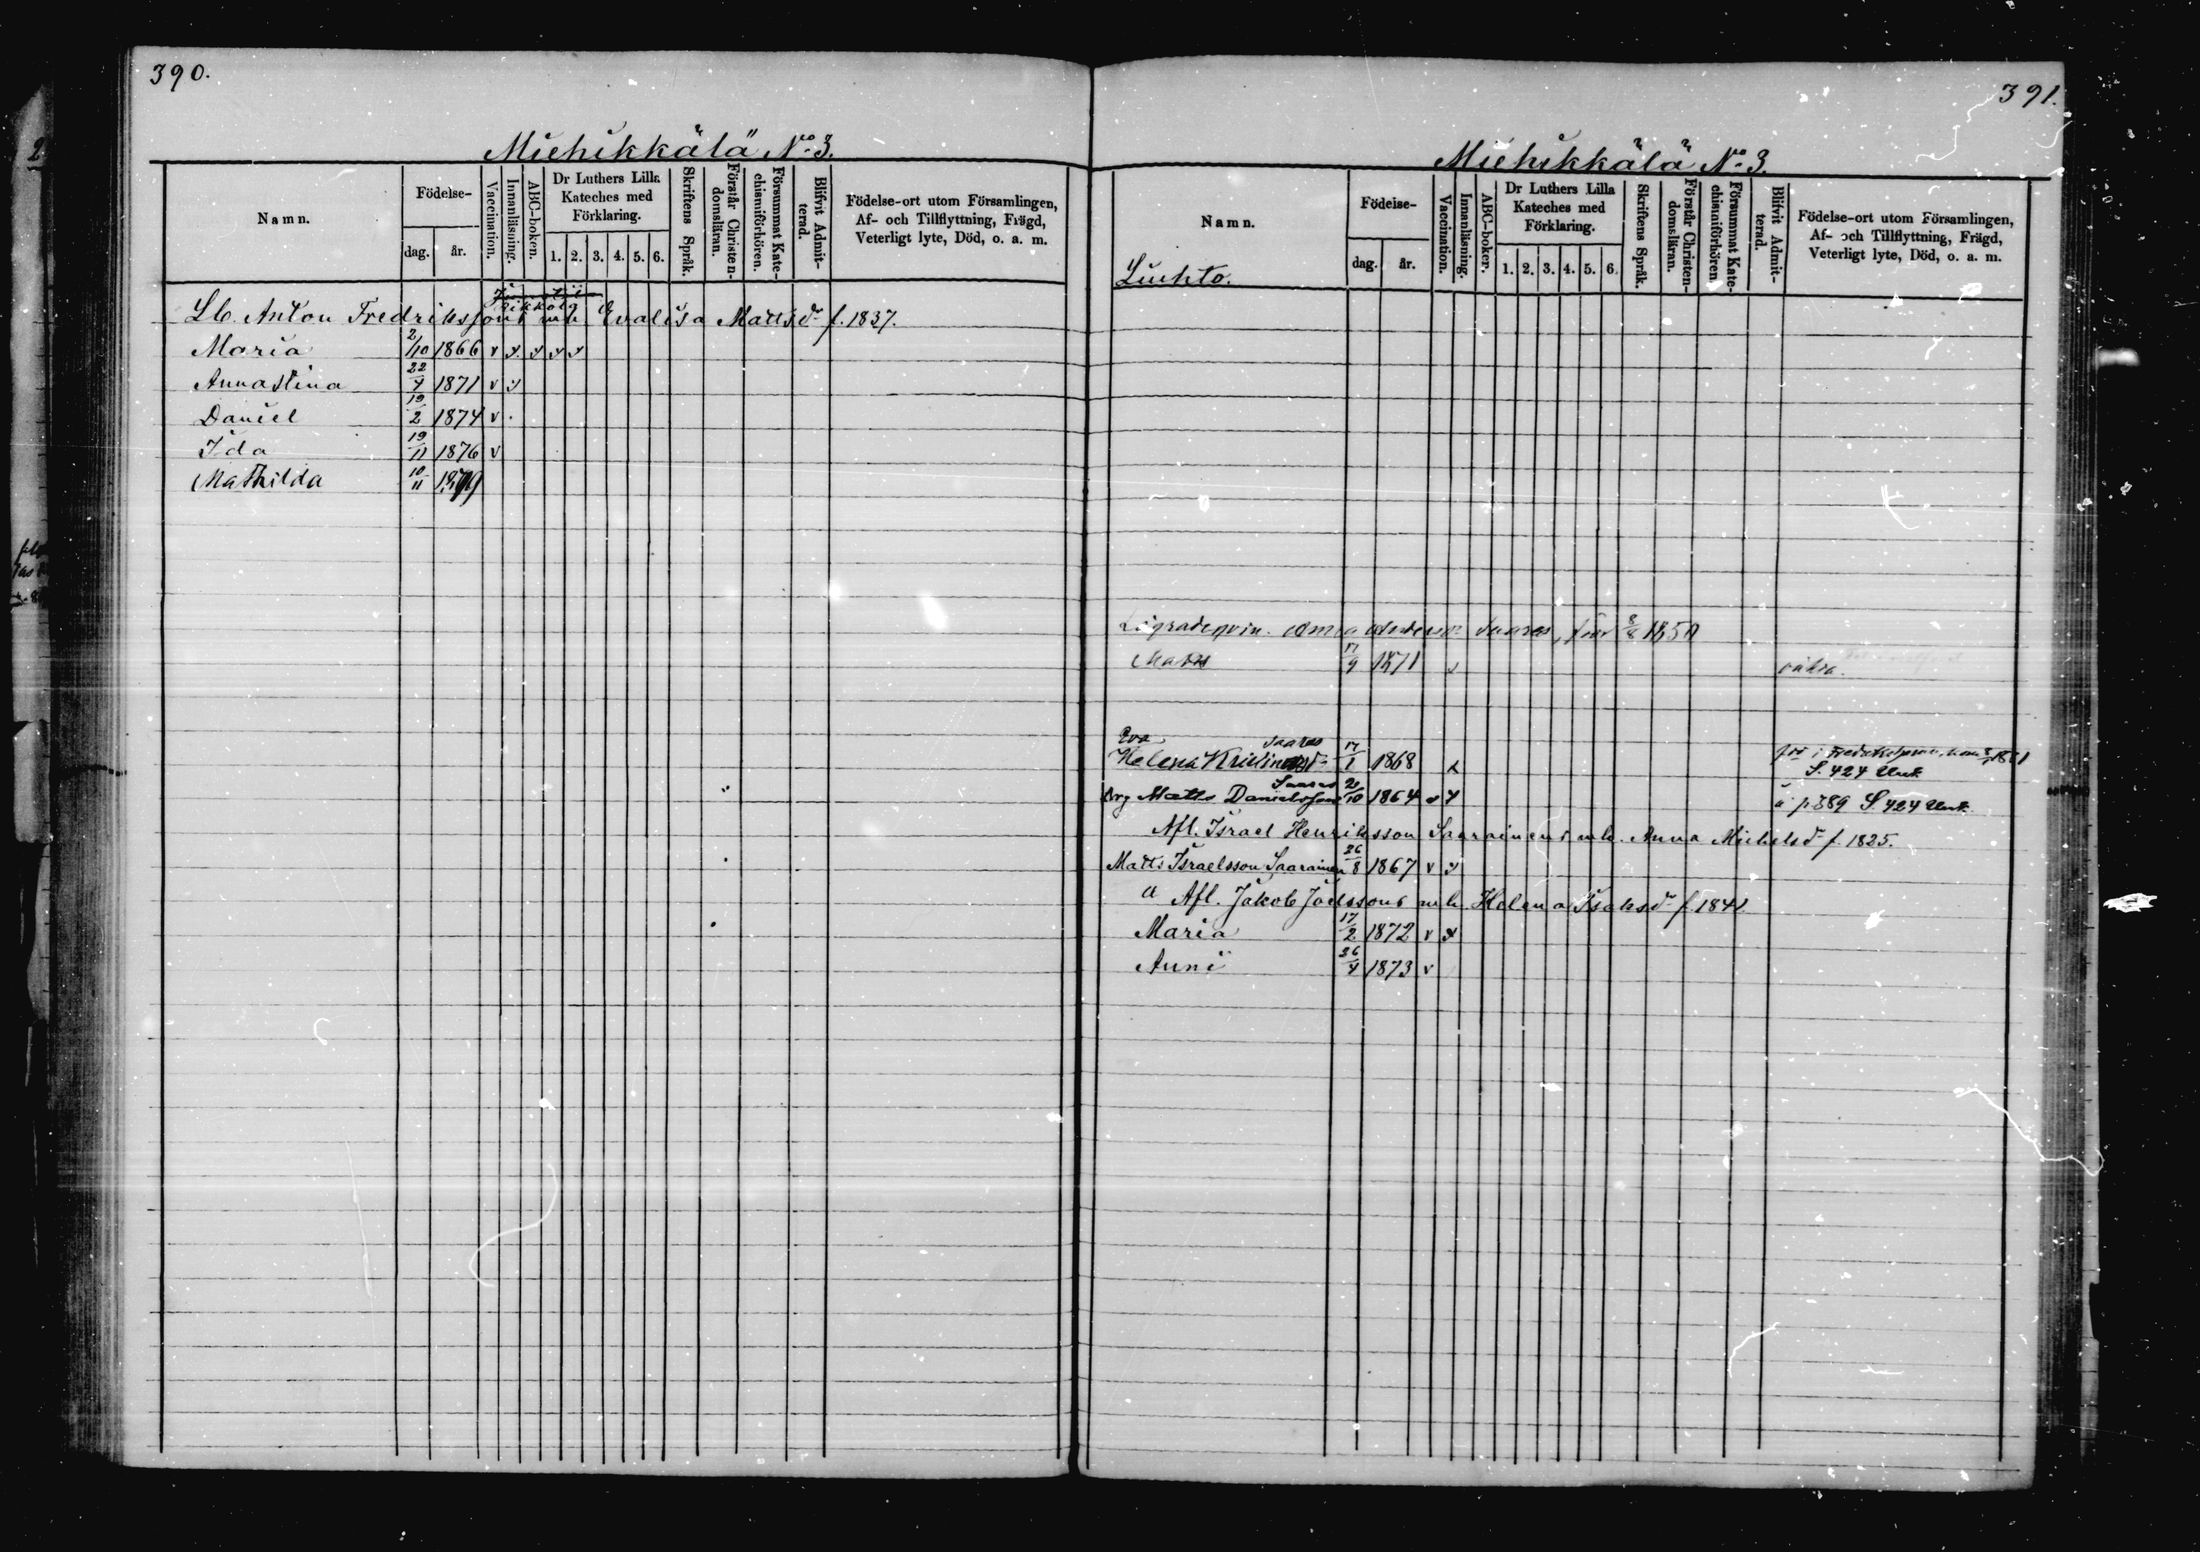 390.
Miehikkälä No 3.
Namn. Födelse- dag. år. Vaccination. Innanläsning. ABC-boken. Dr Luthers Lilla Kateches med Förklaring. 1. 2. 3. 4. 5. 6. Skriftens Språk. Förstår Christendomsläran. Försummat Katechismiförhören. Blifvit Admitterad. Födelse-ort utom Församlingen, Af- och Tillflyttning, Frägd, Veterligt lyte, Död, o. a. m.
Lb. Anton Fredrikssons enk. Evalisa Mattsdr f. 1837.
Maria 2/10 1866 v v v v v
Annastina 22/4 1871 v v
Daniel 19/2 1874 v
Ida 19/11 1876 v
Mathilda 10/11 1879
391.
Miehikkälä No 3.
Namn. Födelse- dag. år. Vaccination. Innanläsning. ABC-boken. Dr Luthers Lilla Kateches med Förklaring. 1. 2. 3. 4. 5. 6. Skriftens Språk. Förstår Christendomsläran. Försummat Katechismiförhören Blifvit Admitterad. Födelse-ort utom Församlingen, Af- och Tillflyttning, Frägd, Veterligt lyte, Död, o. a. m.
Luuhto.
Saares, född 8/8 1850
Matts 17/9 1871 v oäkta.
Eva Saares
Helena 17/1 1868
S. 424
Saares
Drg Matts Danielsson 20/10 1864 v v p 389 S. 424
Afl. Israel Henriksson Saarainens enk. Anna Michelsdr f. 1825.
Matts Israelsson Saarainen 26/8 1867 v v
Afl. Jakob Joelssons enk. Helena Isaksdr f. 1841
Maria 17/2 1872 v v
Anni 26/4 1873 v